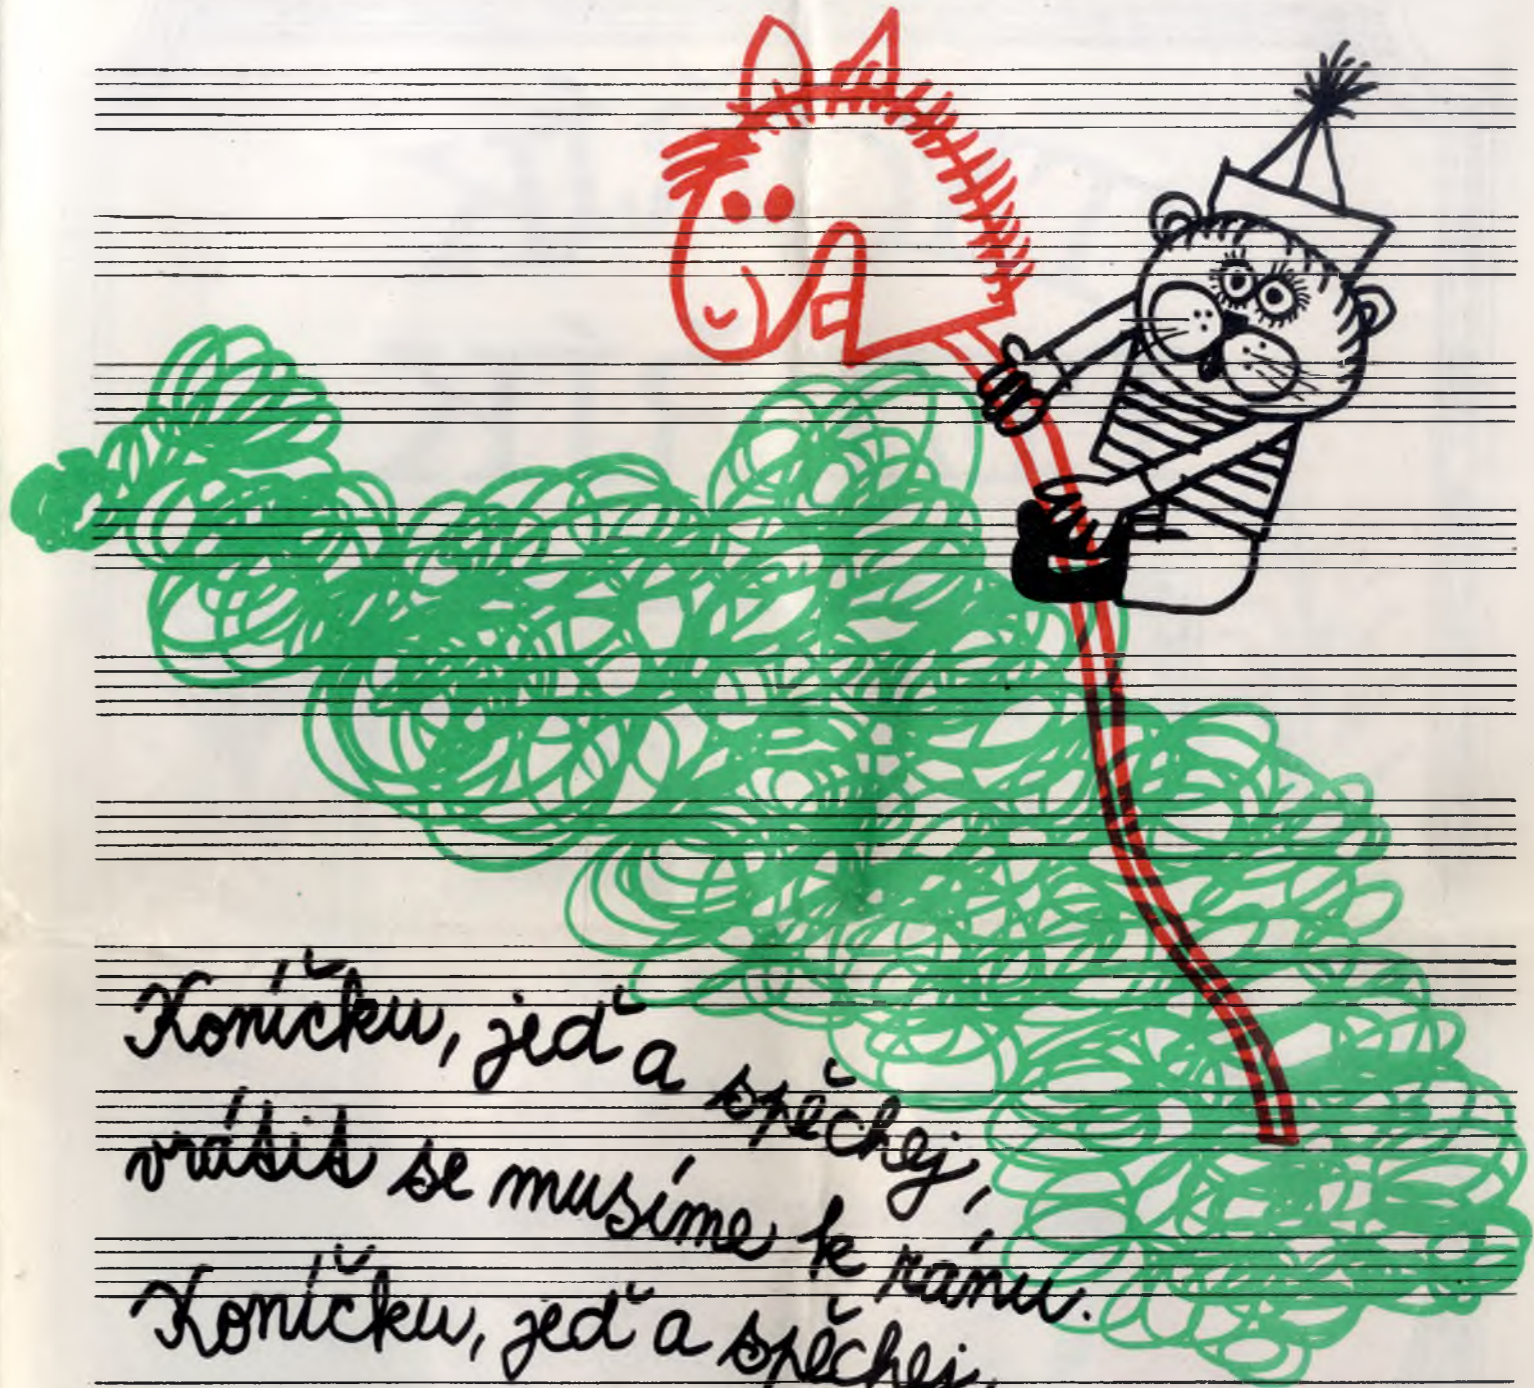 Koníčku, jeď a spěchej,
vrátit se musíme k ránu.
Koníčku, jeď a spěchej,